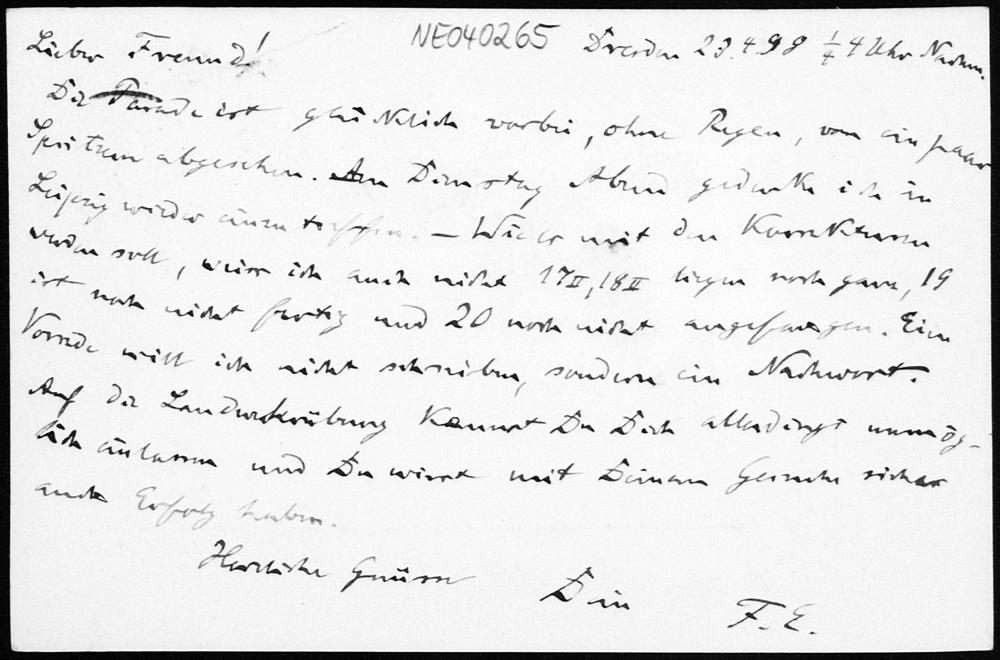 NE040265
Dresden 23.4.98 ¼4 Uhr Nachm.
Lieber Freund!
Die Parade ist glücklich vorbei, ohne Regen, von ein paar
Spritzern abgesehen. Am Dienstag Abend gedenke ich in
Leipzig wieder einzutreffen. – Wie es mit den Korrekturen
werden soll, weiss ich auch nicht 17II, 18II liegen noch ganz, 19
ist noch nicht fertig und 20 noch nicht angefangen. Eine
Vorrede will ich nicht schreiben, sondern ein Nachwort.
Auf die Landwehrübung kannst Du Dich allerdings unmög-
lich einlassen und Du wirst mit Deinem Gesuche sicher
auch Erfolg haben.
Herzliche Grüsse Dein
F. E.